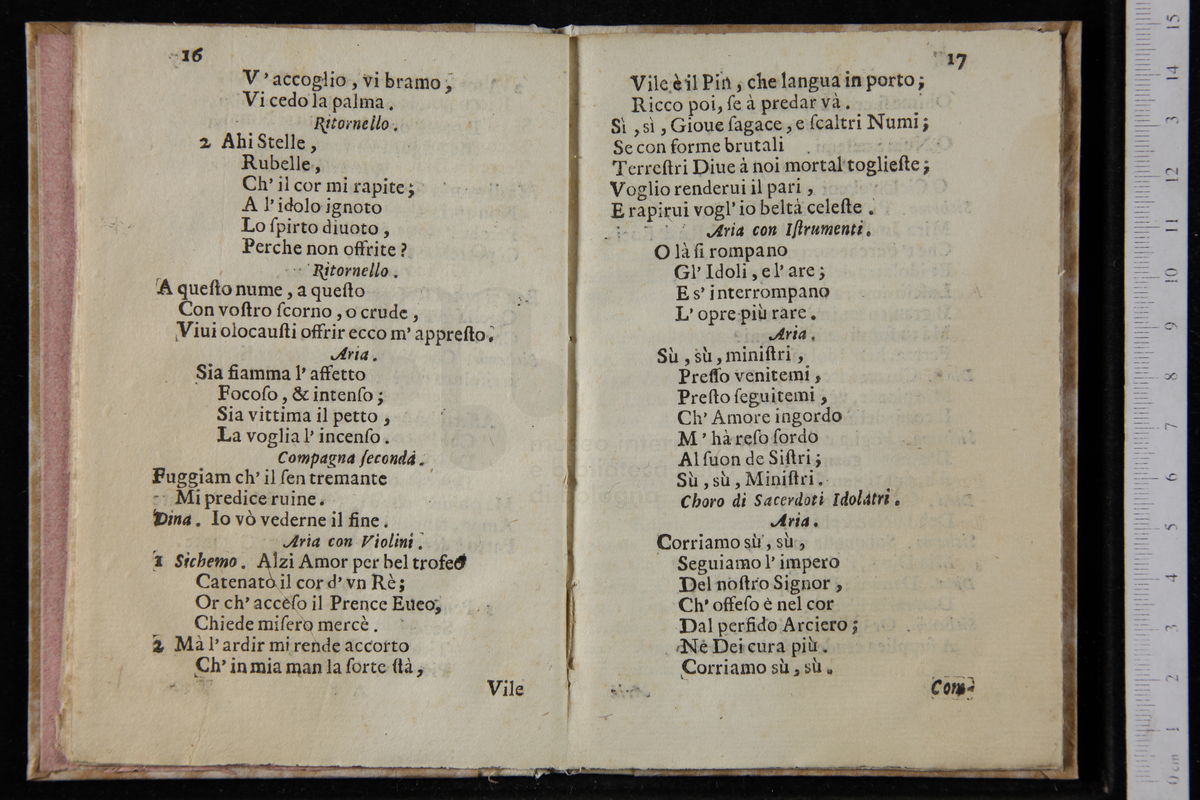 16
V' accoglio, vi bramo;
Vi cedo la palma.
Ritornello.
2 Ahi Stelle,
Rubelle,
Ch' il cor mi rapite;
A l' idolo ignoto
Lo ſpirto diuoto,
Perche non offrite?
Ritornello.
A queſto nume, a queſto
Con voſtro ſcorno, o crude,
Viui olocauſti offrir ecco m' appreſto.
Aria.
Sia fiamma l' affetto
Focoſo, & intenſo;
Sia vittima il petto,
La voglia l' incenſo.
Compagna ſeconda.
Fuggiam ch' il ſen tremante
Mi predice ruine.
Dina. Io vò vederne il fine.
Aria con Violini.
1 Sichemo. Alzi Amor per bel trofeo
Catenato il cor d' vn Rè;
Or ch' acceſo il Prence Eueo,
Chiede miſero mercè.
2 Mà l' ardir mi rende accorto
Ch' in mia man la ſorte ſtà,
Vile
17
Vile è il Pin, che langua in porto;
Ricco poi, ſe à predar và.
Sì, sì, Gioue ſagace, e ſcaltri Numi;
Se con forme brutali
Terreſtri Diue à noi mortal toglieſte;
Voglio renderui il pari,
E rapirui vogl' io beltà celeſte.
Aria con Iſtrumenti.
O là ſi rompano
Gl' Idoli, e l' are;
E s' interrompano
L' opre più rare.
Aria.
Sù, sù, miniſtri,
Preſſo venitemi,
Preſto ſeguitemi,
Ch' Amore ingordo
M' hà reſo ſordo
Al ſuon de Siſtri;
Sù, sù, Miniſtri.
Choro di Sacerdoti Idolatri.
Aria.
Corriamo sù, sù,
Seguiamo l' impero
Del noſtro Signor,
Ch' offeſo è nel cor
Dal perfido Arciero;
Nè Dei cura più.
Corriamo sù, sù.
Com-